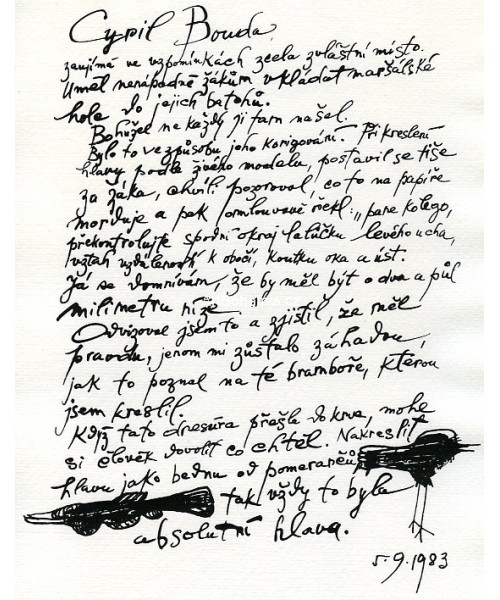 Cyril Bouda
zaujímá ve vzpomínkách zcela zvláštní místo.
Uměl nenápadně žákům vkládat maršálské
hole do jejich batohů.
Bohužel ne každý ji tam našel.
Bylo to ve způsobu jeho korigování. Při kreslení
hlavy podle živého modelu, postavil se tiše
za žáka, chvíli pozoroval, co to na papíře
morduje a pak omlouvavě řekl: „pane kolego,
překontrolujte spodní okraj lalůčku levého ucha,
vztah vzdáleností k obočí, koutku oka a úst.
Já se domnívám, že by měl být o dva a půl
milimetru níže
Odvizoval jsem to a zjistil, že měl
pravdu, jenom mi zůstalo záhadou,
jak to poznal na té bramboře, kterou
jsem kreslil.
Když tato dresúra přešla do krve, mohl
si člověk dovolit co chtěl. Nakreslit
hlavu jako bednu od pomerančů
tak vždy to byla
absolutní hlava.
5.9.1983